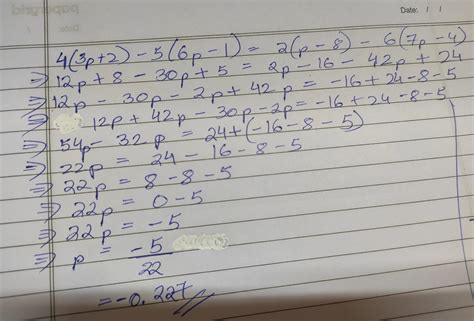 Date: / /
4(3p+2) - 5(6p-1) = 2(p-8) - 6(7p-4)
⇒ 12p + 8 - 30p + 5 = 2p - 16 - 42p + 24
⇒ 12p - 30p - 2p + 42p = -16+24-8-5
⇒ 12p + 42p - 30p - 2p = -16+24-8-5
⇒ 54p - 32p = 24+(-16-8-5)
⇒ 22p = 24 - 16 - 8 - 5
⇒ 22p = 8 - 8 - 5
⇒ 22p = 0 - 5
⇒ 22p = -5
⇒ p = -5/22
= -0.227//